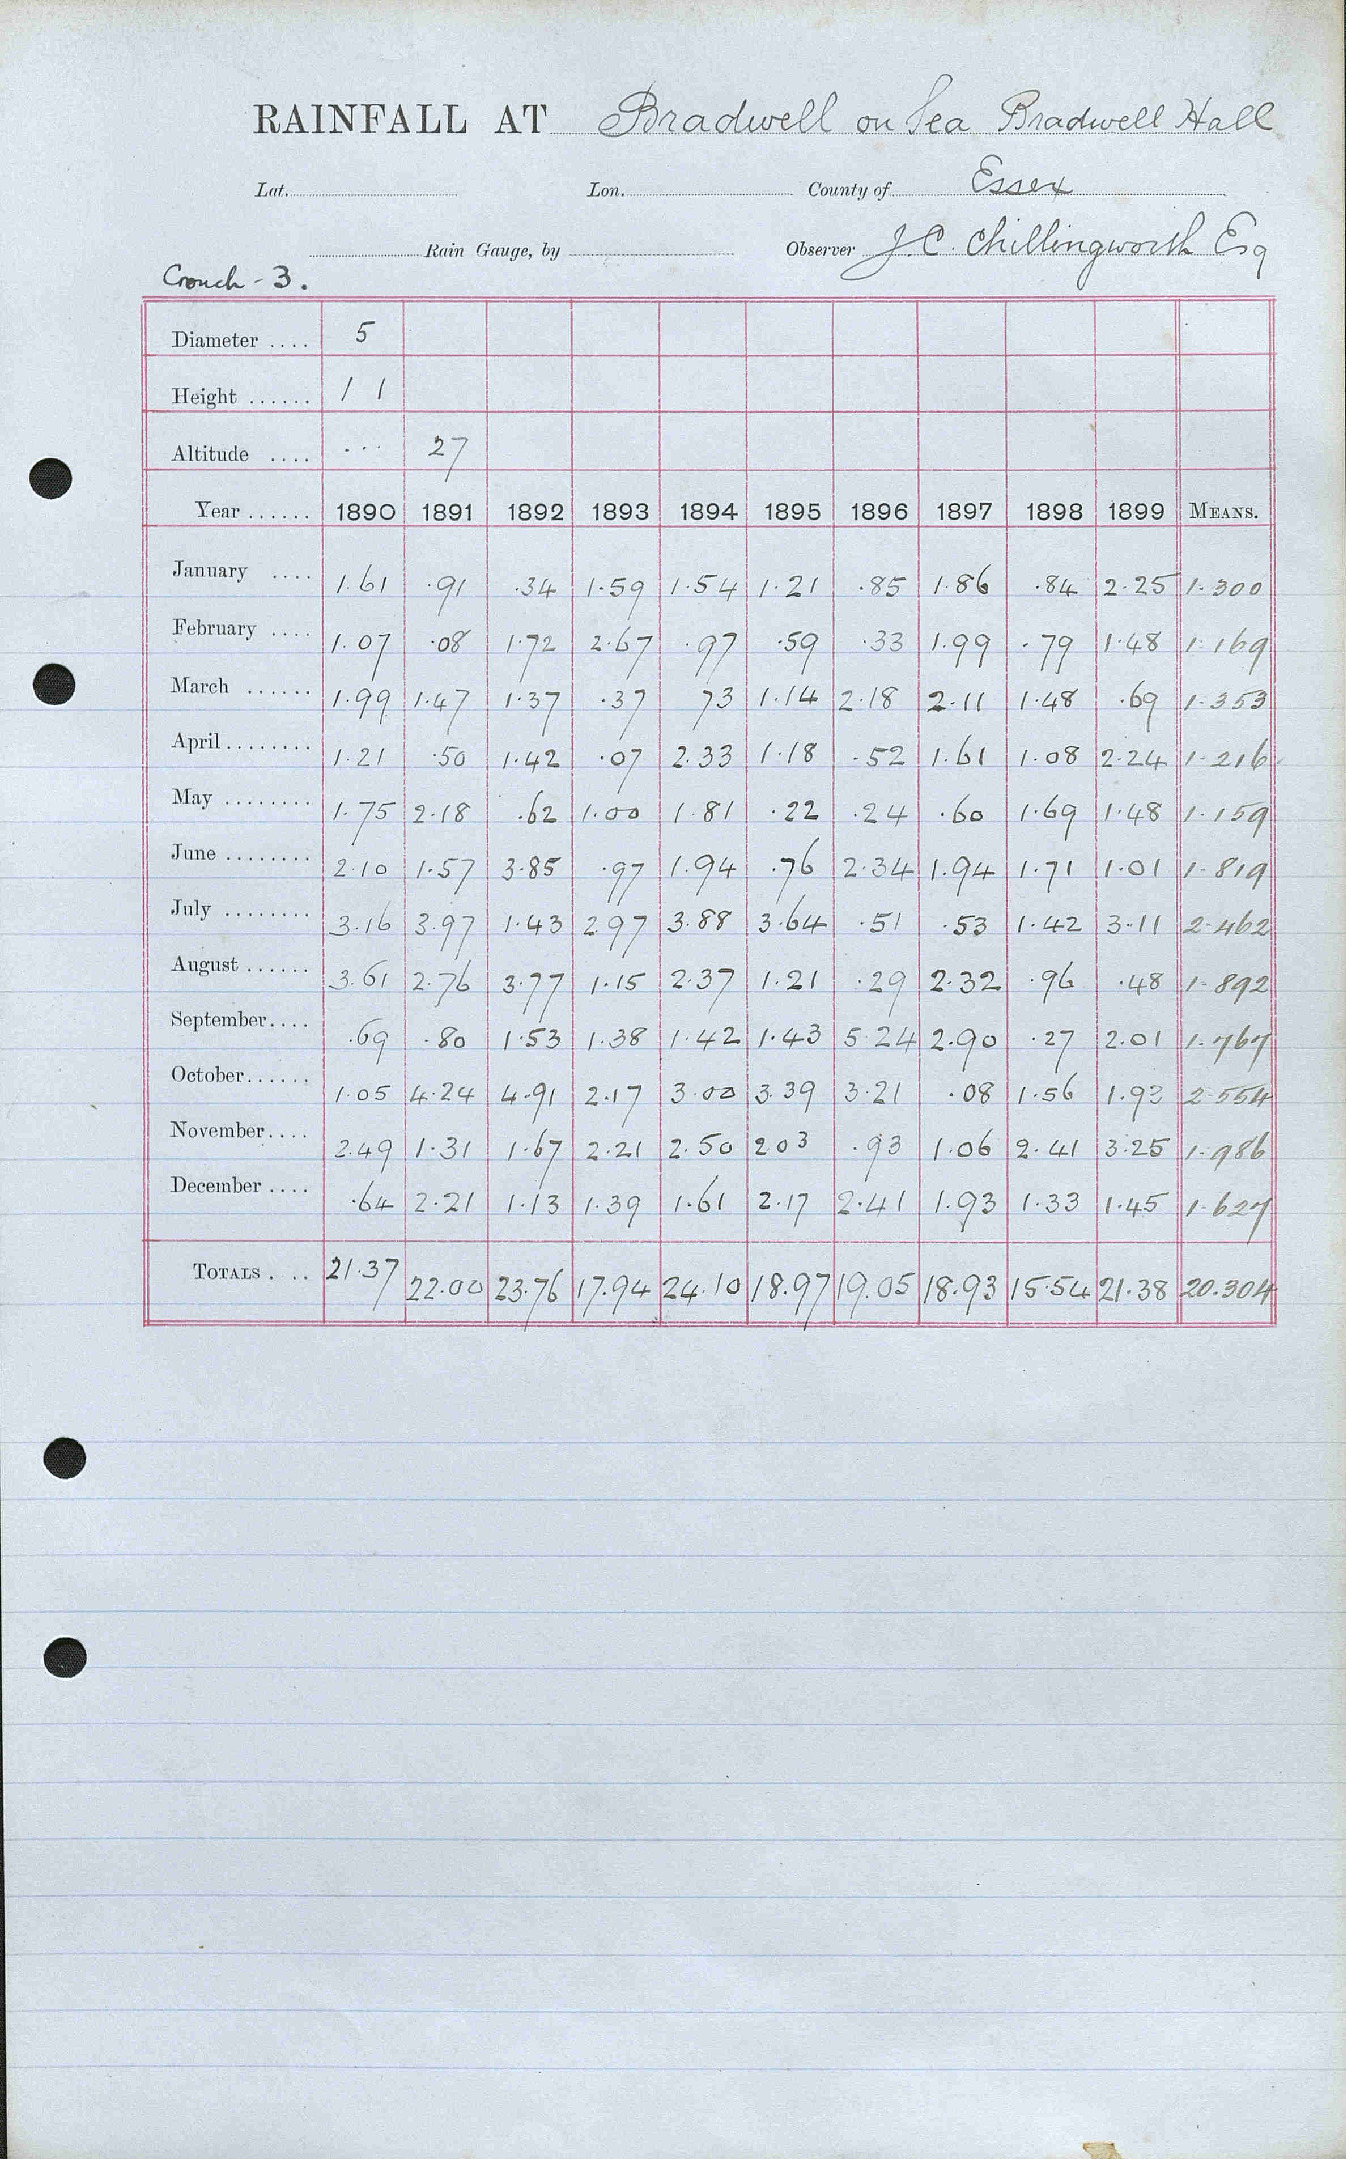 RAINFALL AT Bradwell on Sea Bradwell Hall
Lat. Lon. County of Essex
Rain Gauge, by Observer J.C. Chillingworth Esq
Crouch - 3.
Diameter .... 5
Height ...... 1 1
Altitude .... ... 27
Year ...... 1890 1891 1892 1893 1894 1895 1896 1897 1898 1899 MEANS.
January .... 1.61 .91 .34 1.59 1.54 1.21 .85 1.86 .84 2.25 1.300
February .... 1.07 .08 1.72 2.67 .97 .59 .33 1.99 .79 1.48 1.169
March ...... 1.99 1.47 1.37 .37 73 1.14 2.18 2.11 1.48 .69 1.353
April ........ 1.21 .50 1.42 .07 2.33 1.18 .52 1.61 1.08 2.24 1.216
May ........ 1.75 2.18 .62 1.00 1.81 .22 .24 .60 1.69 1.48 1.159
June ........ 2.10 1.57 3.85 .97 1.94 .76 2.34 1.94 1.71 1.01 1.819
July ........ 3.16 3.97 1.43 2.97 3.88 3.64 .51 .53 1.42 3.11 2.462
August ...... 3.61 2.76 3.77 1.15 2.37 1.21 .29 2.32 .96 .48 1.892
September.... .69 .80 1.53 1.38 1.42 1.43 5.24 2.90 .27 2.01 1.767
October...... 1.05 4.24 4.91 2.17 3.00 3.39 3.21 .08 1.56 1.93 2.554
November.... 2.49 1.31 1.67 2.21 2.50 203 .93 1.06 2.41 3.25 1.986
December .... .64 2.21 1.13 1.39 1.61 2.17 2.41 1.93 1.33 1.45 1.627
TOTALS . .. 21.37 22.00 23.76 17.94 24.10 18.97 19.05 18.93 15.54 21.38 20.304